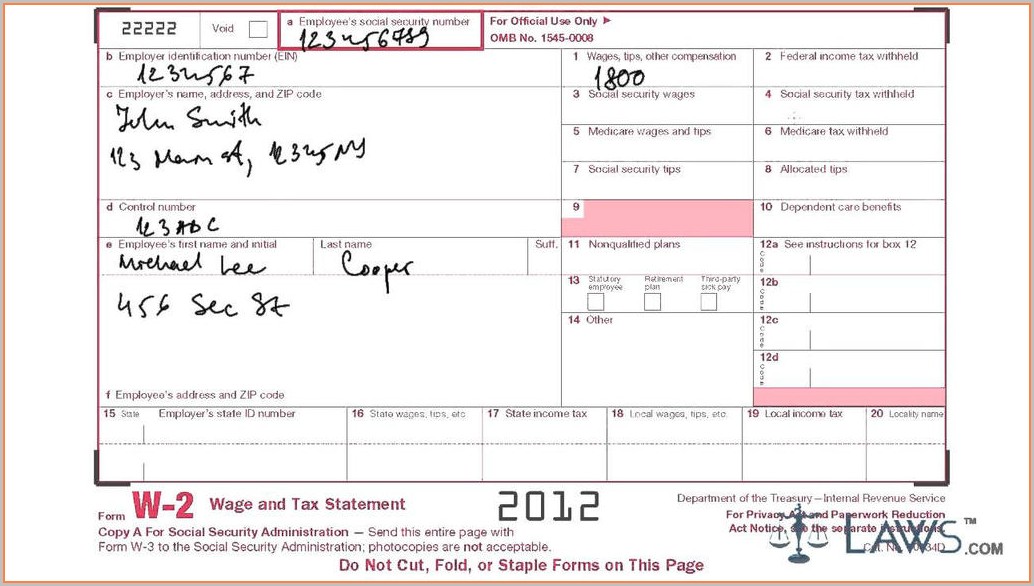 22222 Void a Employee's social security number For Official Use Only ►
123456789 OMB No. 1545-0008
b Employer identification number (EIN) 1 Wages, tips, other compensation 2 Federal income tax withheld
1234567 1800
c Employer's name, address, and ZIP code 3 Social security wages 4 Social security tax withheld
John Smith
5 Medicare wages and tips 6 Medicare tax withheld
123 Main st, 12345 NY
7 Social security tips 8 Allocated tips
d Control number 9 10 Dependent care benefits
123 ABC
e Employee's first name and initial Last name Suff. 11 Nonqualified plans 12a See instructions for box 12
Michael Lee Cooper Code
13 Statutory employee Retirement plan Third-party sick pay 12b
Code
456 Sec St
14 Other 12c
Code
12d
Code
f Employee's address and ZIP code
15 State Employer's state ID number 16 State wages, tips, etc. 17 State income tax 18 Local wages, tips, etc. 19 Local income tax 20 Locality name
Form W-2 Wage and Tax Statement 2012 Department of the Treasury—Internal Revenue Service
For Privacy Act and Paperwork Reduction
Act Notice, see the separate instructions.
Copy A For Social Security Administration — Send this entire page with
Form W-3 to the Social Security Administration; photocopies are not acceptable.
Cat. No.
LAWS.COM ™
Do Not Cut, Fold, or Staple Forms on This Page